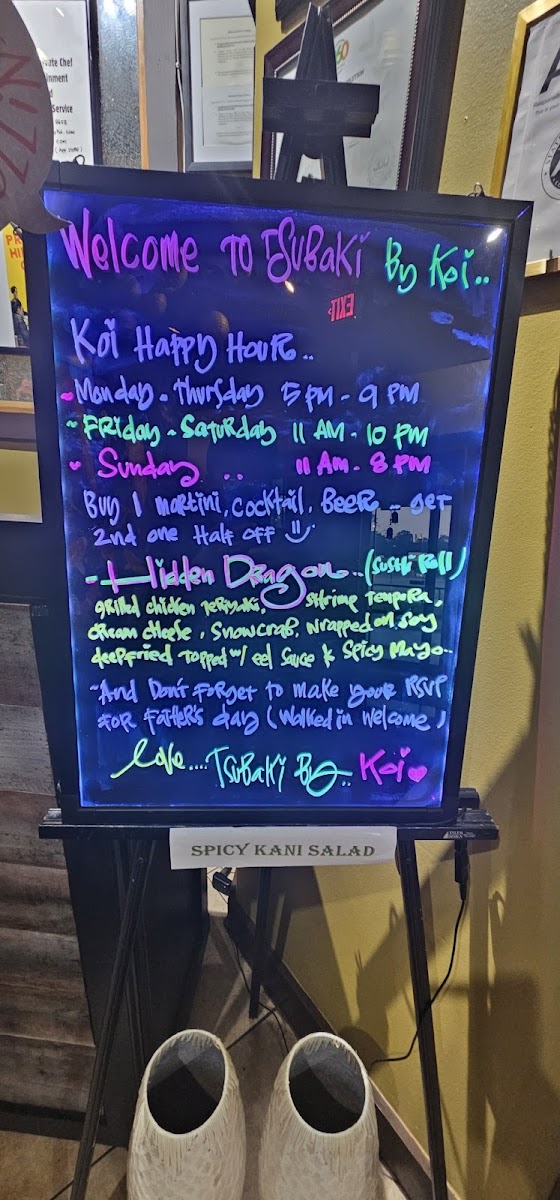 ivate Chef
inment
Service
Welcome To Tsubaki By Koi..
EXIT
Koi Happy Hour..
Monday - Thursday 5 PM - 9 PM
~ Friday ~ Saturday 11 AM - 10 PM
Sunday .. 11 AM - 8 PM
Buy 1 martini, cocktail, Beer .. get
2nd one Half off
- Hidden Dragon.. (Sushi Roll)
grilled chicken Teriyaki, Shrimp Tempura,
cream cheese, snowcrab, wrapped on soy
deepfried topped w/ eel Sauce & Spicy Mayo..
~And Don't Forget to make your RSVP
For Father's day (Walked in Welcome)
Love.... Tsubaki By.. Koi
SPICY KANI SALAD